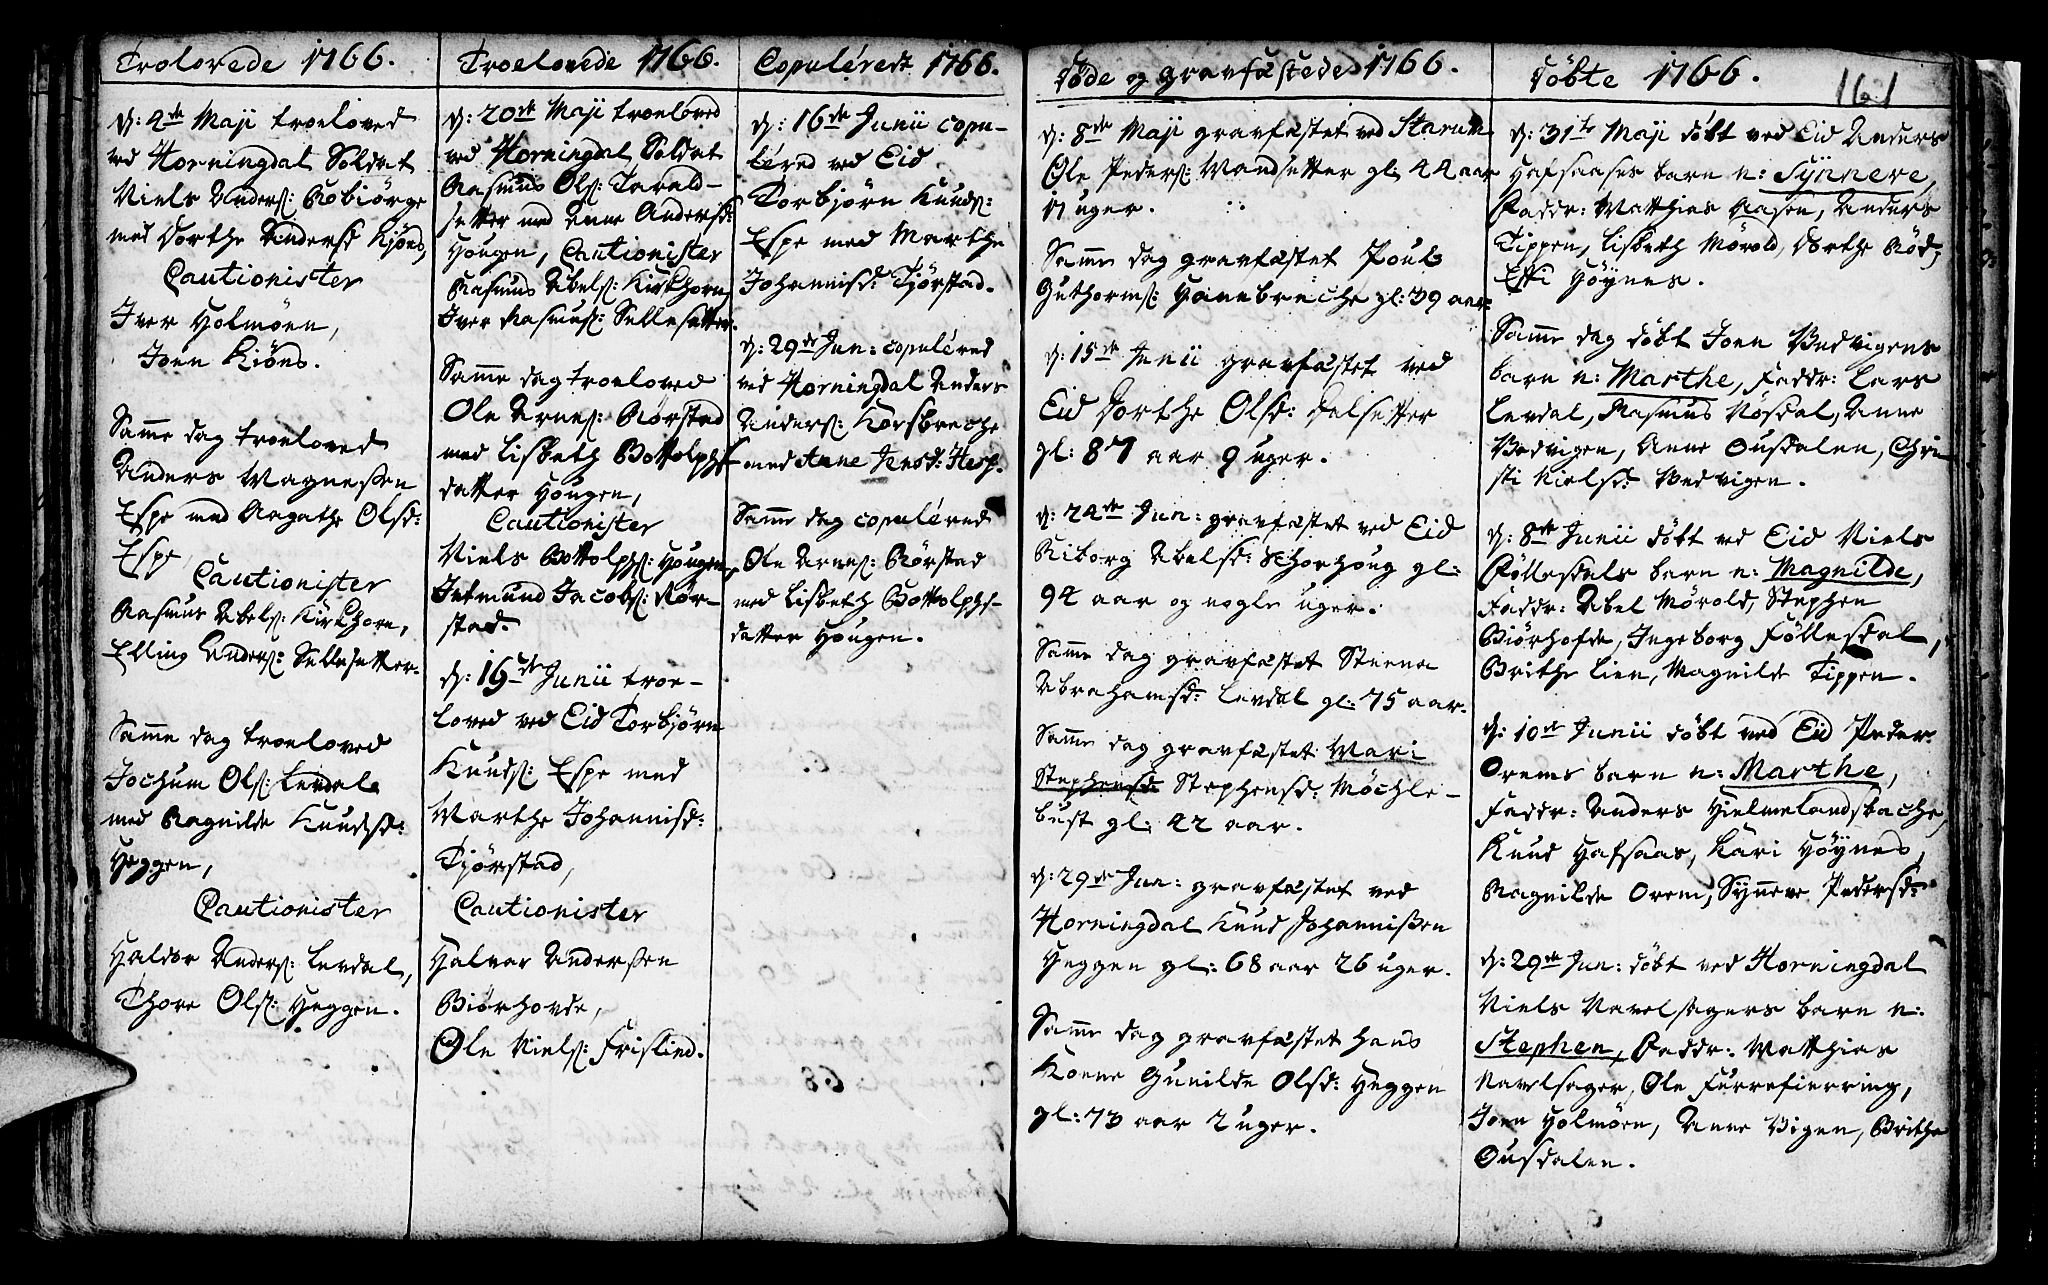 Trolovede 1766.
d: 4de Maji troeloved
ved Horningdal Soldat
Niels Anders: Robiørge
med Dorthe Andersd Kjøns,
Cautionister
Iver Holmøen,
Joen Kiøns.
Samme dag troeloved
Anders Magnessen
Espe med Aagathe Olsd:
Espe,
Cautionister
Rasmus Abels: Kirkhorn,
Elling Anders: Sellesetter.
Samme dag troeloved
Jochum Ols: Levdal
med Ragnilde Knudsd:
Heggen,
Cautionister
Haldor Anders: Levdal,
Thore Ols: Heggen.
Troelovede 1766.
d: 20de Maji troeloved
ved Horningdal Soldat
Rasmus Ols: Tarald-
setter med Anne Andersd:
Hougen, Cautionister
Rasmus Abels: Kirkhorn,
Iver Rasmus: Sellesetter.
Samme dag troeloved
Ole Arnes: Rørstad
med Lisbeth Bottolphs-
datter Hougen,
Cautionister
Niels Bottolphs: Hougen,
Jetmund Jacobs: Rør-
stad.
d: 16de Junii troe-
loved ved Eid Torbjørn
Knuds: Espe med
Marthe Johannisd:
Tjørstad,
Cautionister
Halvar Anderssen
Biørhovde,
Ole Niels: Frislied.
Copulerede 1766.
d: 16de Junii copu-
lered ved Eid
Torbjørn Knuds:
Espe med Marthe
Johannisd: Tjørstad.
d: 29de Jun: copulered
ved Horningdal Anders
Anders: Korsbreche
med Anne Jensd: Hesp.
Samme dag copulered
Ole Arnes: Rørstad
med Lisbeth Bottolphs-
datter Hougen.
Døde og gravfæstede 1766.
d: 8de Maji gravfæstet ved Starum
Ole Peders: Mandsetter gl: 44 aar
11 uger.
Samme dag gravfæstet Poul
Guthorms: Hanebreche gl: 39 aar.
d: 15de Junii gravfæstet ved
Eid Dorthe Olsd: Delsetter
gl: 87 aar 9 uger.
d: 24de Jun: gravfæstet ved Eid
Riborg Abelsd: Schorhoug gl:
94 aar og nogle uger.
Samme dag gravfæstet Steena
Abrahamsd: Levdal gl: 75 aar.
Samme dag gravfæstet Mari
Stephensd: Stephensd: Møchle-
bust gl: 42 aar.
d: 29de Jun: gravfæstet ved
Horningdal Knud Johannissen
Heggen gl: 68 aar 26 uger.
Samme dag gravfæstet hans
Kone Gunilde Olsd: Heggen
gl: 73 aar 2 uger.
Døbte 1766.
161
d: 31te Maji døbt ved Eid Anders
Hafsaases barn n: Synneve,
Faddr: Matthias Aasen, Anders
Tippen, Lisbeth Mørold, Dorthe Rød,
Effi Høynes.
Samme dag døbt Joen Vedvigens
barn n: Marthe, Faddr: Lars
Levdal, Rasmus Nøsdal, Anne
Vedvigen, Anne Ousdalen, Chri-
sti Nielsd: Vedvigen.
d: 8de Junii døbt ved Eid Niels
Føllesdals barn n: Magnilde,
Faddr: Abel Mørold, Stephen
Biørhofde, Ingeborg Føllesdal,
Brithe Lien, Magnilde Tippen.
d: 10de Junii døbt ved Eid Peder
Orems barn n: Marthe,
Faddr: Anders Hielmelandsbache,
Knud Hafsaas, Kari Høynes,
Ragnilde Orem, Synneve Pedersd:
d: 29de Jun: døbt ved Horningdal
Niels Navelsagers barn n:
Stephen, Faddr: Matthias
Navelsager, Ole Furrefierring,
Joen Holmøen, Anne Vigen, Brithe
Ousdalen.